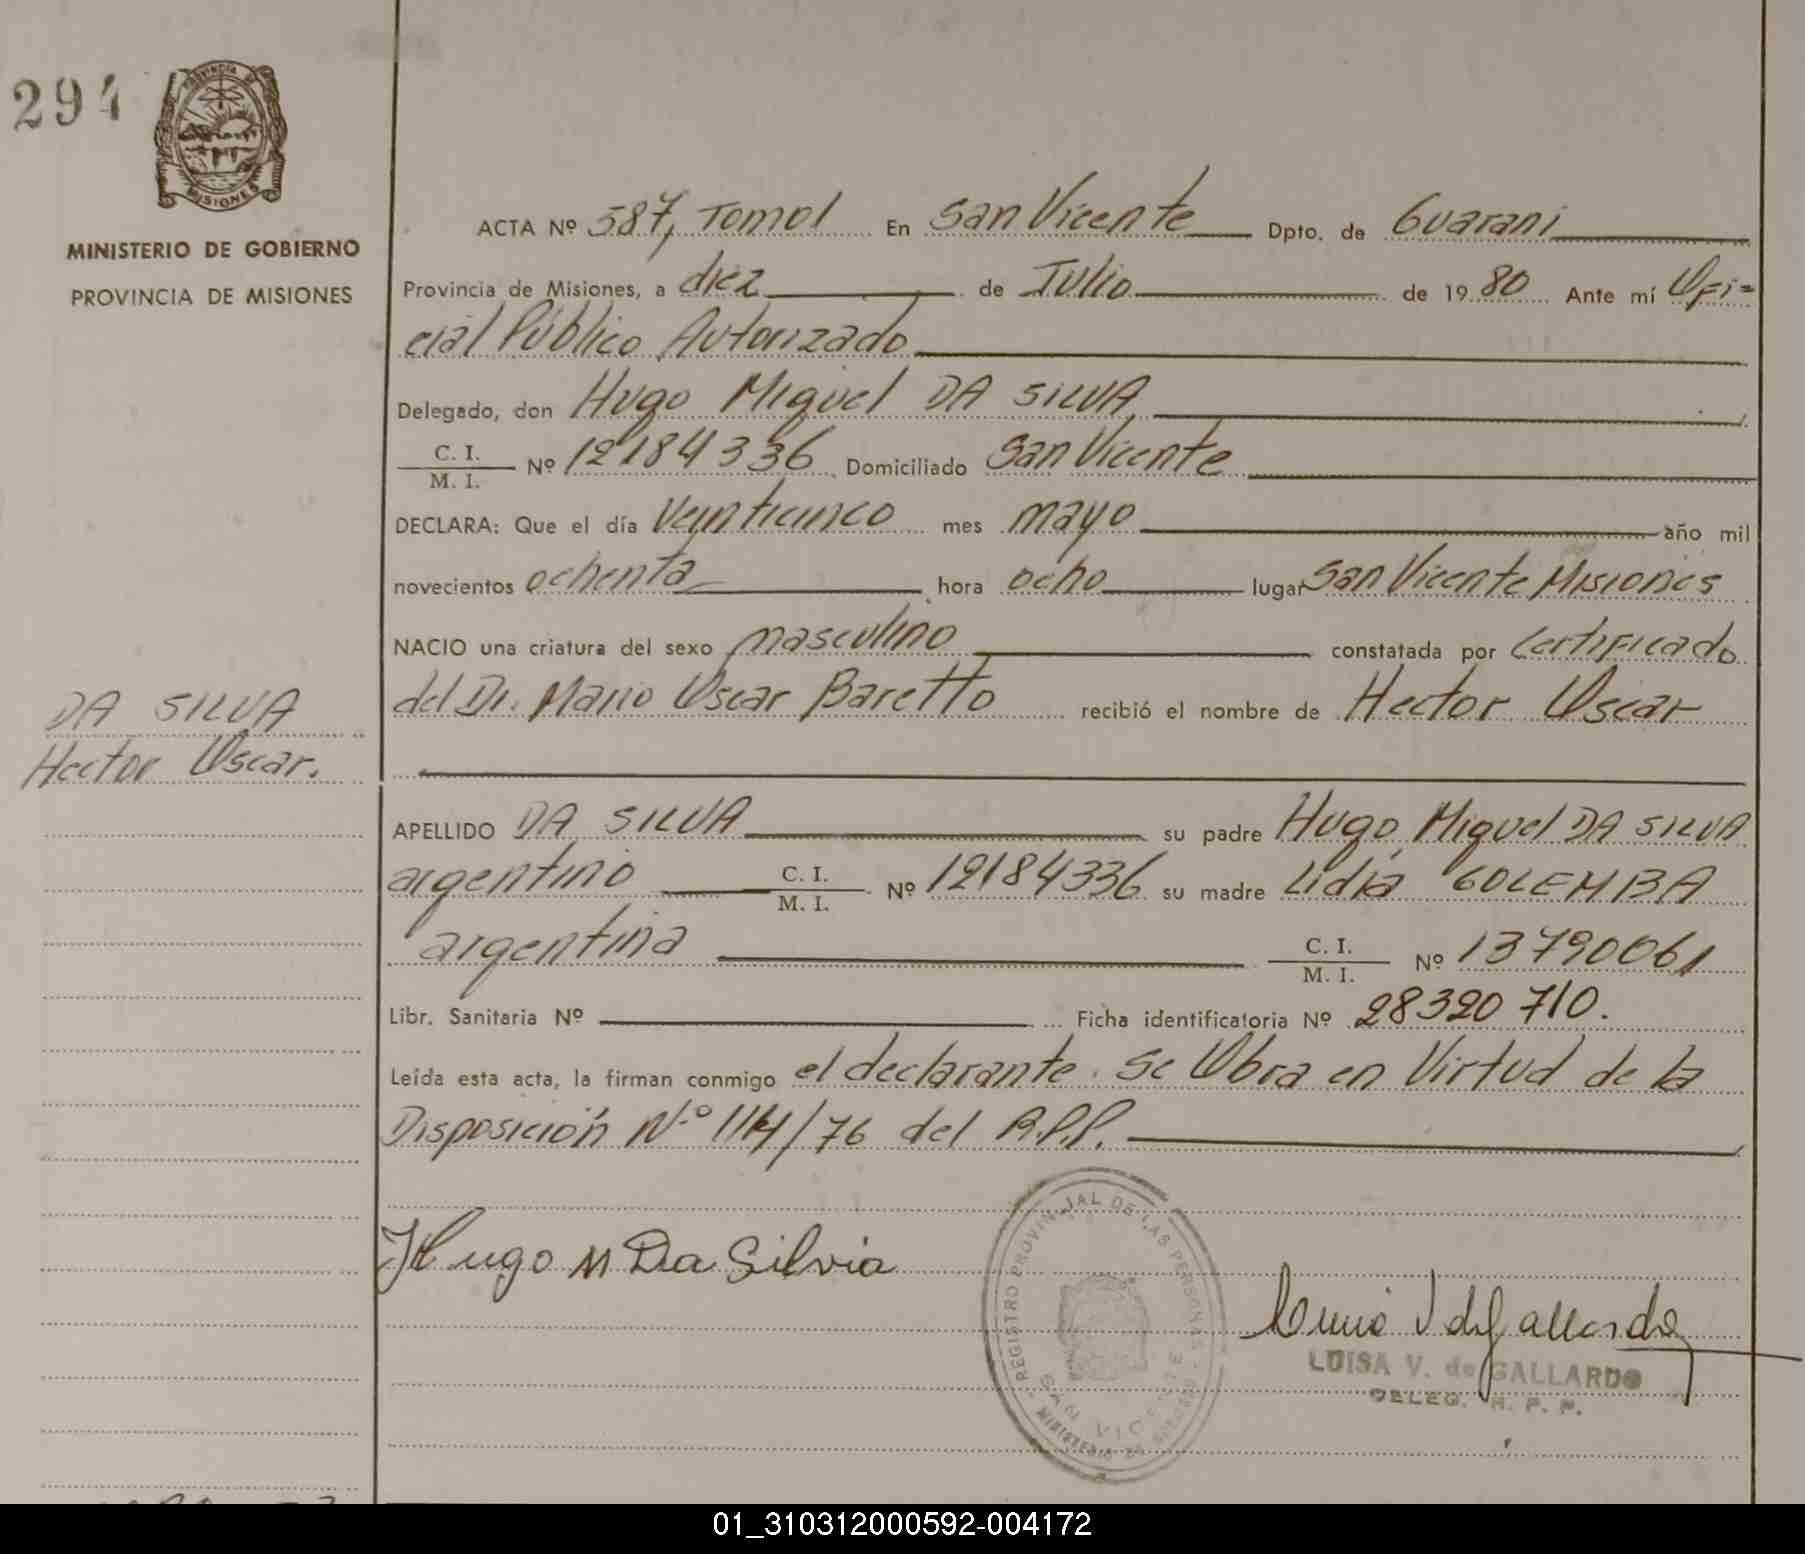 294
PROVINCIA DE
MISIONES
MINISTERIO DE GOBIERNO
PROVINCIA DE MISIONES
ACTA Nº 587, Tomo I En San Vicente Dpto. de Guarani
Provincia de Misiones, a diez de Julio de 19 80 Ante mí Ofi=
cial Público Autorizado
Delegado, don Hugo Miguel DA SILVA
C. I.
M. I. Nº 12184336 Domiciliado San Vicente
DECLARA: Que el día Veinticinco mes mayo año mil
novecientos ochenta hora ocho lugar San Vicente Misiones
NACIO una criatura del sexo masculino constatada por Certificado
del Dr. Mario Oscar Baretto recibió el nombre de Hector Oscar
DA SILVA
Hector Oscar.
APELLIDO DA SILVA su padre Hugo Miguel DA SILVA
argentino C. I.
M. I. Nº 12184336 su madre Lidia GOLEMBA
argentina C. I.
M. I. Nº 13790061
Libr. Sanitaria Nº Ficha identificatoria Nº 28320710.
Leída esta acta, la firman conmigo el declarante. Se Obra en Virtud de la
Disposición Nº 114/76 del R.P.P.
Hugo M Da Silvia
REGISTRO PROVINCIAL DE LAS PERSONAS
SAN VICENTE
MINISTERIO DE GOBIERNO
LUISA V. de GALLARDO
DELEG. R. P. P.
01_310312000592-004172